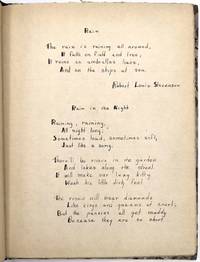 Rain
The rain is raining all around,
It falls on field and tree,
It rains on umbrellas here,
And on the ships at sea.
Robert Louis Stevenson
Rain in the Night
Raining, raining,
All night long;
Sometimes loud, sometimes soft,
Just like a song.
There'll be rivers in the gardens
And lakes along the street
It will make our lazy kitty
Wash his little dirty feet
The roses will wear diamonds
Like kings and queens at court;
But the pansies all get muddy
Because they are so short